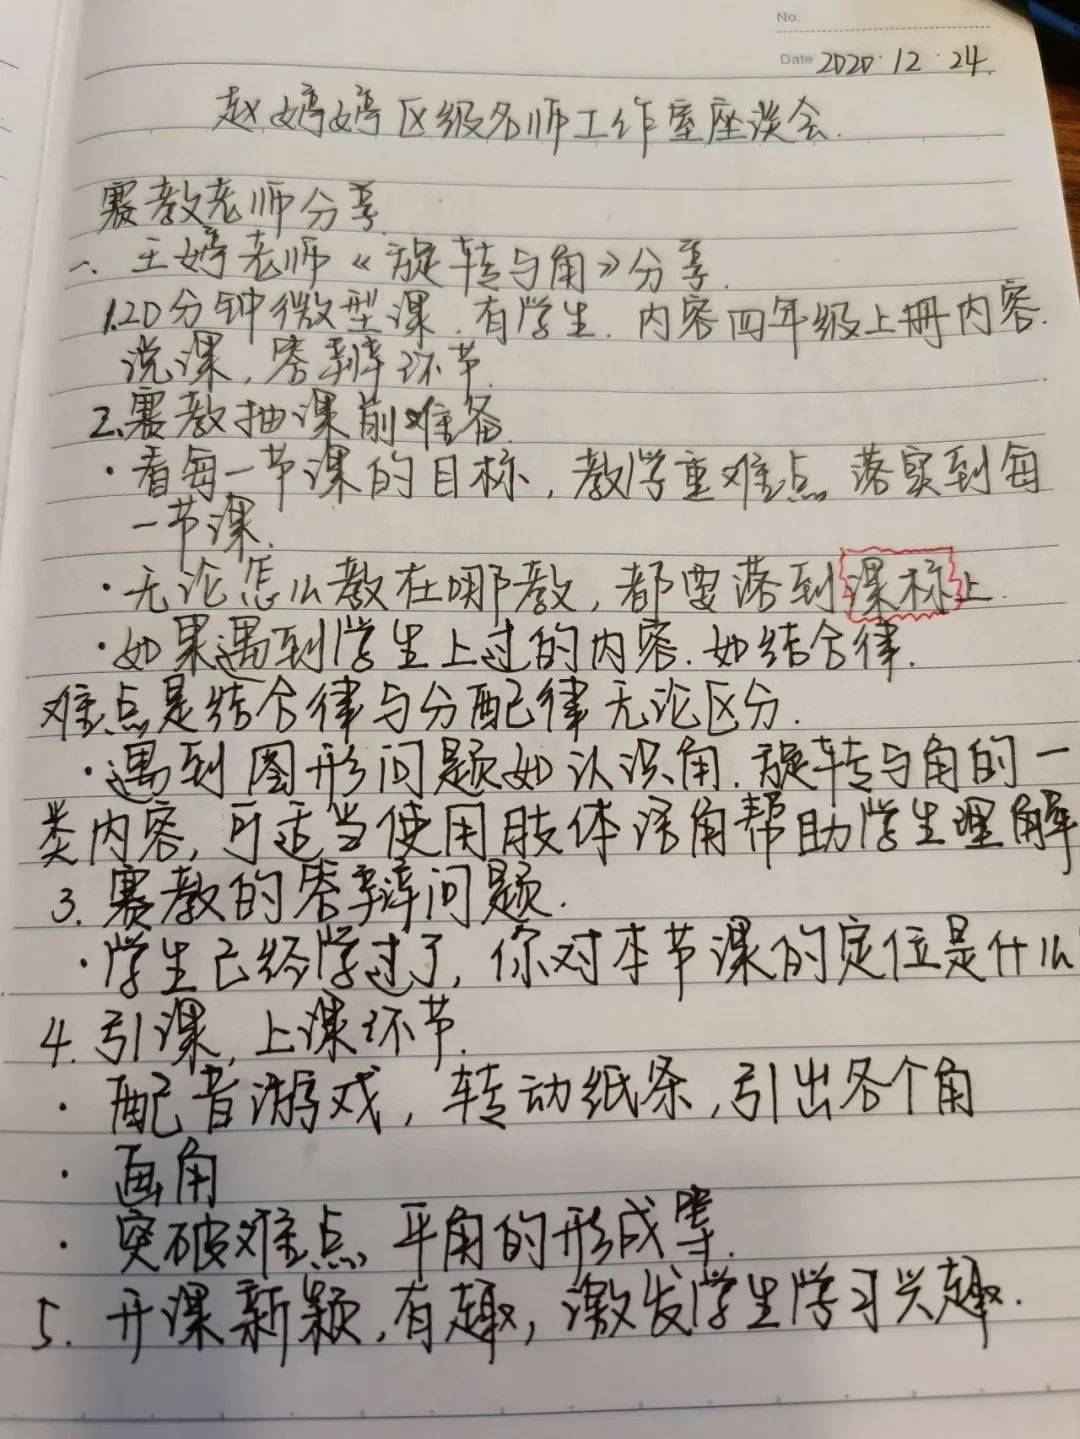 No.
Date 2020.12.24.
赵婷婷区级名师工作室座谈会.
赛教老师分享
一、王婷老师《旋转与角》分享.
1.20分钟微型课.有学生.内容四年级上册内容.
说课,答辩环节.
2.赛教抽课前准备.
·看每一节课的目标,教学重难点落实到每
一节课.
·无论怎么教在哪教,都要落到课标上.
·如果遇到学生上过的内容.如结合律.
难点是结合律与分配律无论区分.
·遇到图形问题如认识角.旋转与角的一
类内容,可适当使用肢体语角帮助学生理解
3.赛教的答辩问题.
·学生已经学过了,你对本节课的定位是什么
4.引课,上课环节.
·配音游戏,转动纸条,引出各个角
·画角
·突破难点平角的形成等.
5.开课新颖,有趣,激发学生学习兴趣.